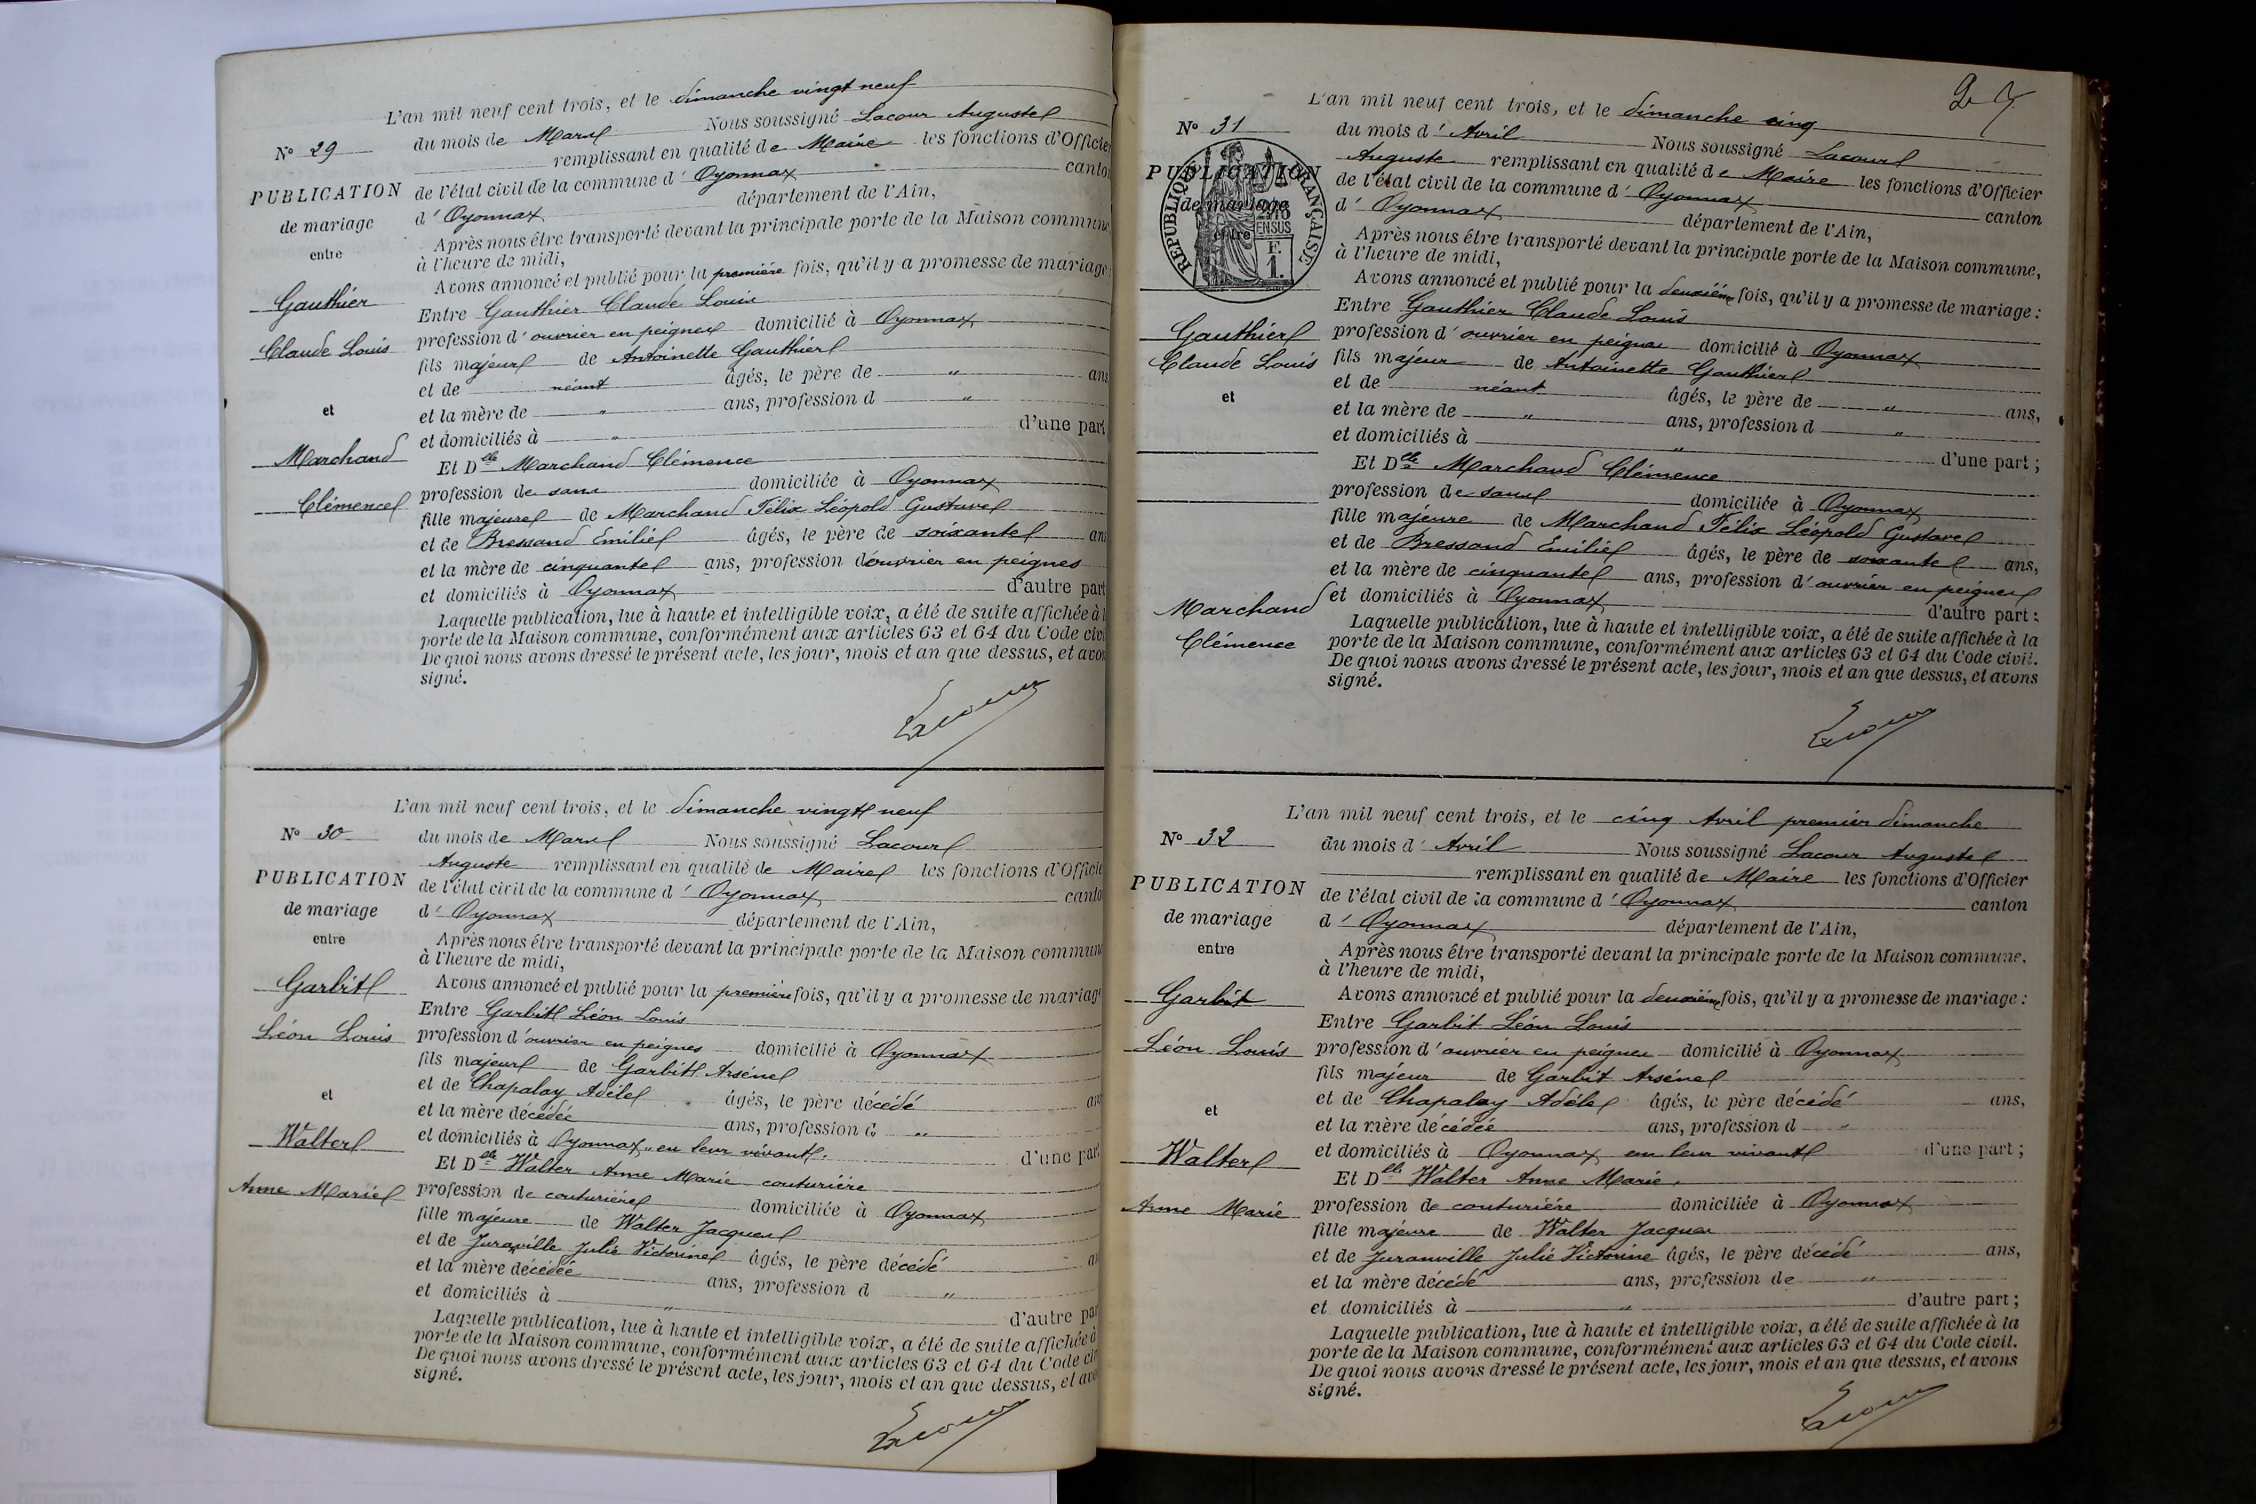 L'an mil neuf cent trois, et le dimanche vingt neuf
N° 29
du mois de Mars Nous soussigné Lacour Auguste
remplissant en qualité de Maire les fonctions d'Officie
PUBLICATION
de l'état civil de la commune d' Oyonnax canto
de mariage
d' Oyonnax département de l'Ain,
entre
Après nous être transporté devant la principale porte de la Maison commune
à l'heure de midi,
Avons annoncé et publié pour la première fois, qu'il y a promesse de mariage
Gauthier
Entre Gauthier Claude Louis
Claude Louis
profession d'ouvrier en peignes domicilié à Oyonnax
fils majeur de Antoinette Gauthier
et de néant âgés, le père de " ans
et
et la mère de " ans, profession d "
et domiciliés à " d'une part
Marchand
Et Dlle Marchand Clémence
Clémence
profession de sans domiciliée à Oyonnax
fille majeure de Marchand Félix Léopold Gustave
et de Bressand Emilie âgés, le père de soixante ans
et la mère de cinquante ans, profession d'ouvrier en peignes
et domiciliés à Oyonnax d'autre part
Laquelle publication, lue à haute et intelligible voix, a été de suite affichée à l
porte de la Maison commune, conformément aux articles 63 et 64 du Code civi
De quoi nous avons dressé le présent acte, les jour, mois et an que dessus, et avon
signé.
Lacour
L'an mil neuf cent trois, et le dimanche vingt neuf
N° 30
du mois de Mars Nous soussigné Lacour
Auguste remplissant en qualité de Maire les fonctions d'Officie
PUBLICATION
de l'état civil de la commune d' Oyonnax canto
de mariage
d' Oyonnax département de l'Ain,
entre
Après nous être transporté devant la principale porte de la Maison commun
à l'heure de midi,
Garbit
Avons annoncé et publié pour la première fois, qu'il y a promesse de mariag
Entre Garbit Léon Louis
Léon Louis
profession d'ouvrier en peignes domicilié à Oyonnax
fils majeur de Garbit Arsène
et de Chapalay Adèle âgés, le père décédé an
et
et la mère décédée ans, profession d "
Walter
et domiciliés à Oyonnax en leur vivant. d'une part
Et Dlle Walter Anne Marie couturière
Anne Marie
profession de couturière domiciliée à Oyonnax
fille majeure de Walter Jacques
et de Juraville Julie Victorine âgés, le père décédé a
et la mère décédée ans, profession d "
et domiciliés à " d'autre par
Laquelle publication, lue à haute et intelligible voix, a été de suite affichée à
porte de la Maison commune, conformément aux articles 63 et 64 du Code civ
De quoi nous avons dressé le présent acte, les jour, mois et an que dessus, et avo
signé.
Lacour
L'an mil neuf cent trois, et le dimanche cinq
N° 31
du mois d' Avril Nous soussigné Lacour
Auguste remplissant en qualité de Maire les fonctions d'Officier
PUBLICATION
de l'état civil de la commune d' Oyonnax canton
de mariage
d' Oyonnax département de l'Ain,
entre
RÉPUBLIQUE FRANÇAISE
2/10 EN SUS
F. 1.
Après nous être transporté devant la principale porte de la Maison commune,
à l'heure de midi,
Avons annoncé et publié pour la deuxième fois, qu'il y a promesse de mariage :
Entre Gauthier Claude Louis
Gauthier
profession d'ouvrier en peignes domicilié à Oyonnax
Claude Louis
fils majeur de Antoinette Gauthier
et de néant âgés, le père de " ans,
et
et la mère de " ans, profession d "
et domiciliés à " d'une part ;
Et Dlle Marchand Clémence
profession de sans domiciliée à Oyonnax
fille majeure de Marchand Félix Léopold Gustave
et de Bressand Emilie âgés, le père de soixante ans,
et la mère de cinquante ans, profession d'ouvrier en peignes
Marchand
et domiciliés à Oyonnax d'autre part ;
Clémence
Laquelle publication, lue à haute et intelligible voix, a été de suite affichée à la
porte de la Maison commune, conformément aux articles 63 et 64 du Code civil.
De quoi nous avons dressé le présent acte, les jour, mois et an que dessus, et avons
signé.
Lacour
L'an mil neuf cent trois, et le cinq Avril premier dimanche
N° 32
du mois d' Avril Nous soussigné Lacour Auguste
remplissant en qualité de Maire les fonctions d'Officier
PUBLICATION
de l'état civil de la commune d' Oyonnax canton
de mariage
d' Oyonnax département de l'Ain,
entre
Après nous être transporté devant la principale porte de la Maison commune.
à l'heure de midi,
Garbit
Avons annoncé et publié pour la deuxième fois, qu'il y a promesse de mariage :
Entre Garbit Léon Louis
Léon Louis
profession d'ouvrier en peignes domicilié à Oyonnax
fils majeur de Garbit Arsène
et de Chapalay Adèle âgés, le père décédé ans,
et
et la mère décédée ans, profession d "
Walter
et domiciliés à Oyonnax en leur vivant d'une part ;
Et Dlle Walter Anne Marie.
Anne Marie
profession de couturière domiciliée à Oyonnax
fille majeure de Walter Jacques
et de Juranville Julie Victorine âgés, le père décédé ans,
et la mère décédé ans, profession de "
et domiciliés à " d'autre part ;
Laquelle publication, lue à haute et intelligible voix, a été de suite affichée à la
porte de la Maison commune, conformément aux articles 63 et 64 du Code civil.
De quoi nous avons dressé le présent acte, les jour, mois et an que dessus, et avons
signé.
Lacour